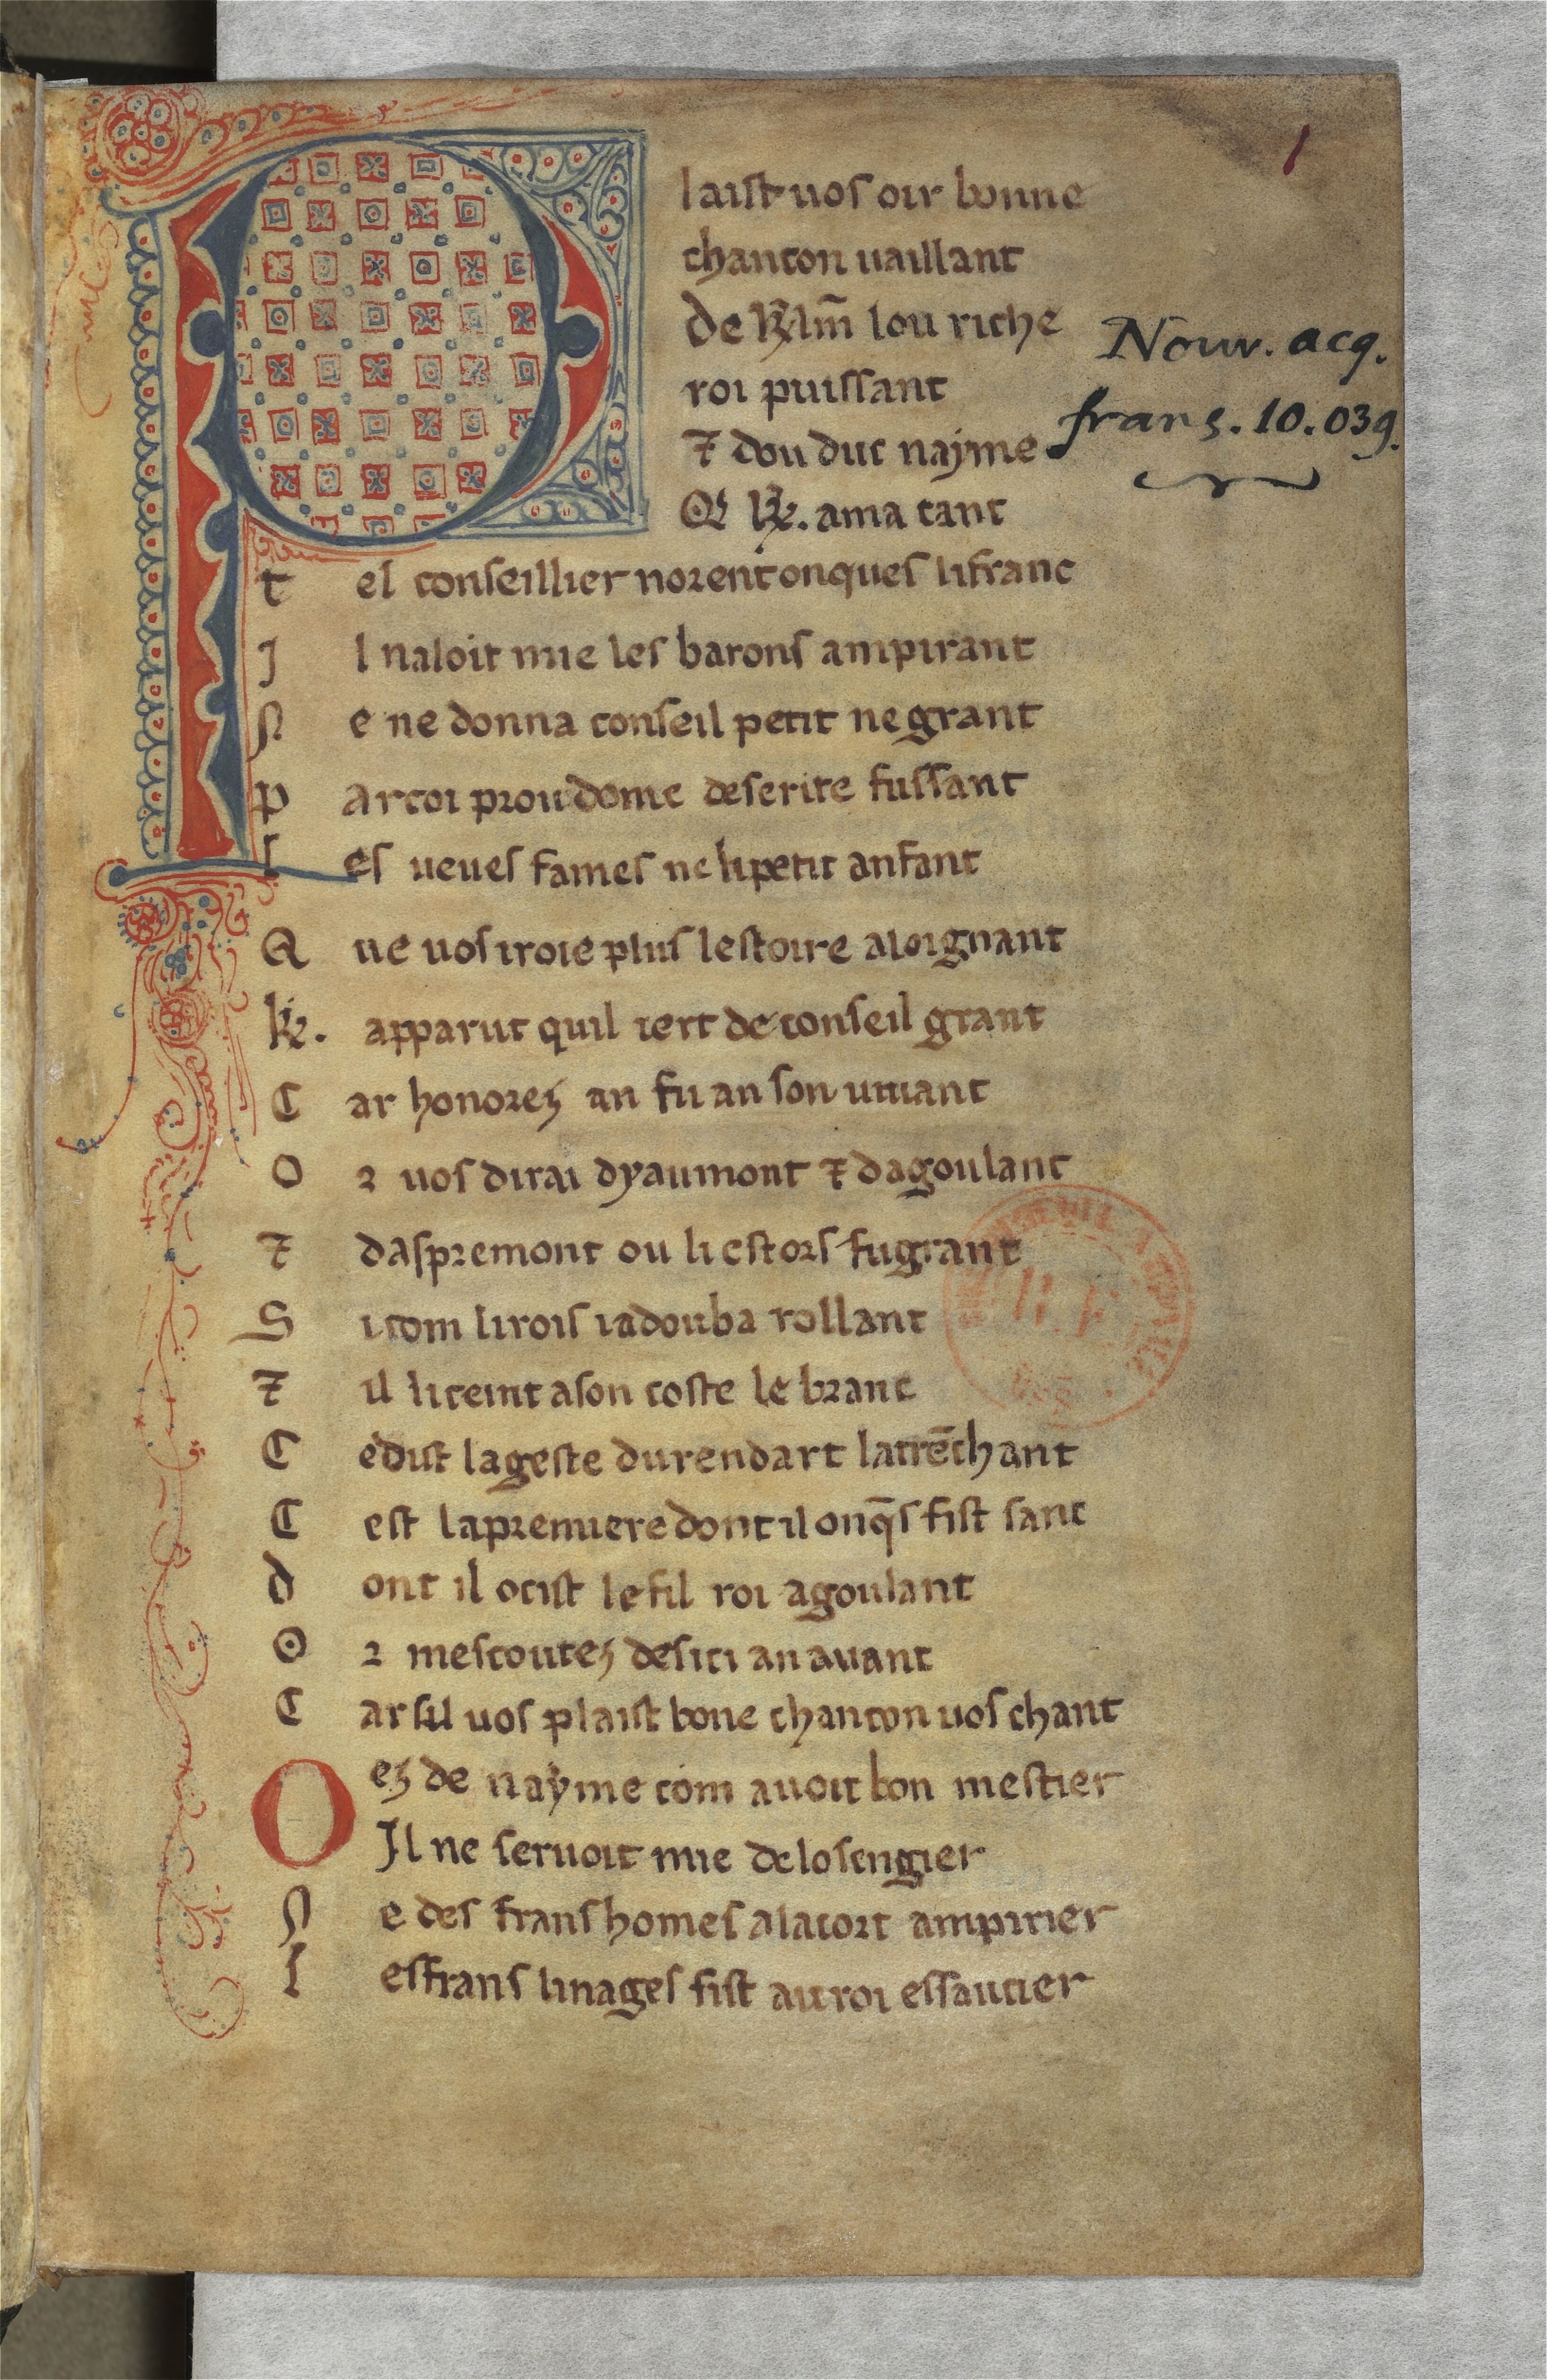 1
Plaist uos oir bonne
chancon uaillant
De kl̃m lou riche
roi puissant
⁊ dou duc najme
Nouv. acq.
franç. 10.039.
Qͥ k. ama tant
t el conseillier norent onques li franc
J l naloit mie les barons ampirant
N e ne donna conseil petit ne grant
p ar coi proudome deserite fussant
l es ueues fames ne li petit anfant
Q ue uos iroie plus lestoire aloignant
k. apparut quil iert de conseil grant
C ar honorez an fu an son uiuant
O r uos dirai dyaumont ⁊ dagoulant
⁊ daspremont ou li estors fu grant
S i com li rois i adouba rollant
⁊ il li ceint a son coste le branc
C e dist la geste durendart la trẽchant
C est la premiere dont il onq̄s fist sanc
d ont il ocist le fil roi agoulant
O r mescoutez desici an auant
C ar sil uos plaist bone chancon uos chant
O ez de nayme com auoit bon mestier
Jl ne seruoit mie de losengier
N e des frans homes a la cort ampirier
l es frans linages fist au roi essaucier